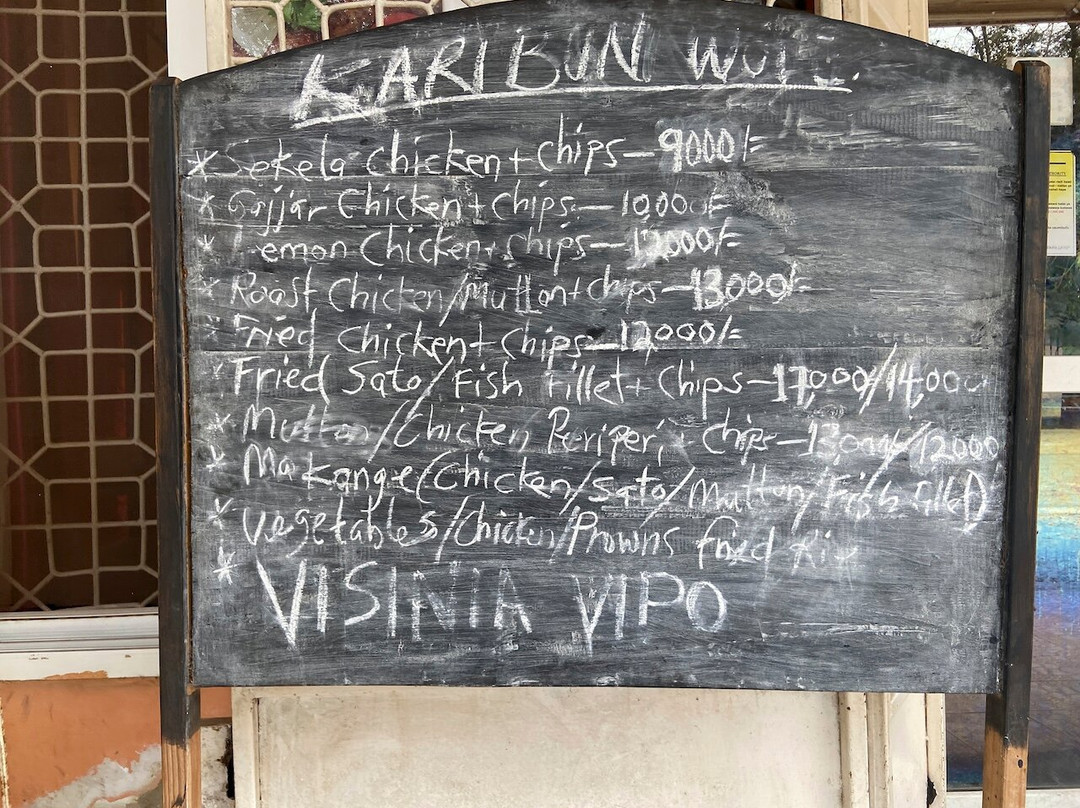 KARIBUN WOTE.
* Sekela Chicken + Chips - 9000/=
* Gajjar Chicken + Chips - 10,000/=
* Lemon Chicken + Chips - 12,000/=
* Roast Chicken/Mutton + Chips - 13,000/=
* Fried Chicken + Chips - 12,000/=
* Fried Sato/Fish Fillet + Chips - 17,000/14,000
* Mutton/Chicken Periperi + Chips - 13,000/12000
* Makange (Chicken/Sato/Mutton/Fish fillet)
* Vegetables/Chicken/Prowns fried Rice
* VISINIA VIPO